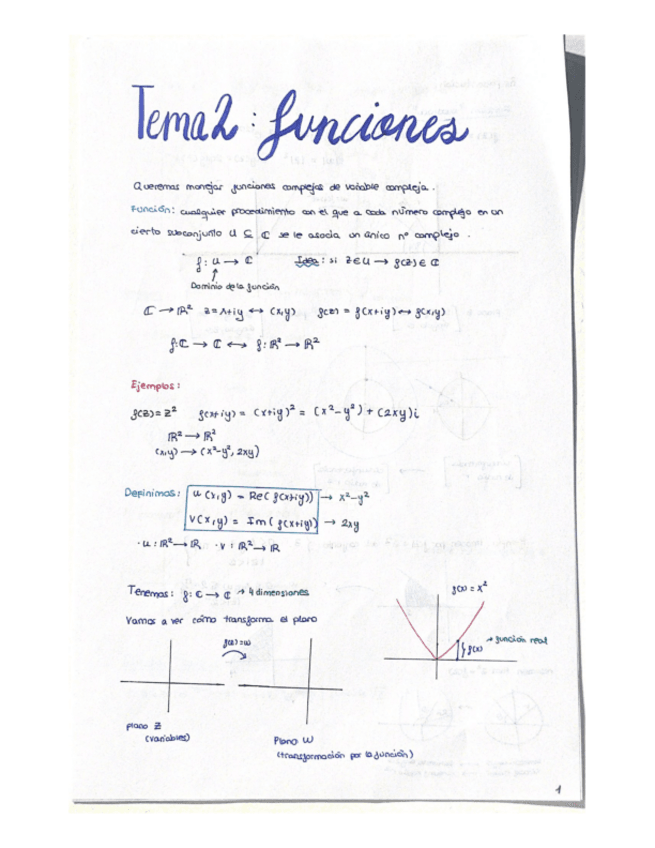 Tema 2: funciones
Queremos manejar funciones complejas de variable compleja.
Función: cualquier procedimiento con el que a cada número complejo en un
cierto subconjunto U ⊆ ℂ se le asocia un único nº complejo.
f: U → ℂ Idea: si z∈U → f(z)∈ℂ
Dominio de la función
ℂ → ℝ² z = x+iy ↔ (x,y) f(z) = f(x+iy) ↔ f(x,y)
f: ℂ → ℂ ↔ f: ℝ² → ℝ²
Ejemplos:
f(z) = z² f(x+iy) = (x+iy)² = (x²-y²) + (2xy)i
ℝ² → ℝ²
(x,y) → (x²-y², 2xy)
Definimos: u(x,y) = Re(f(x+iy)) → x²-y²
v(x,y) = Im(f(x+iy)) → 2xy
· u: ℝ² → ℝ · v: ℝ² → ℝ
Tenemos: f: ℂ → ℂ → 4 dimensiones
Vamos a ver cómo transforma el plano
f(x) = x²
→ función real
f(x)
f(z) = w
plano z
(variables)
Plano w
(transformación por la función)
1